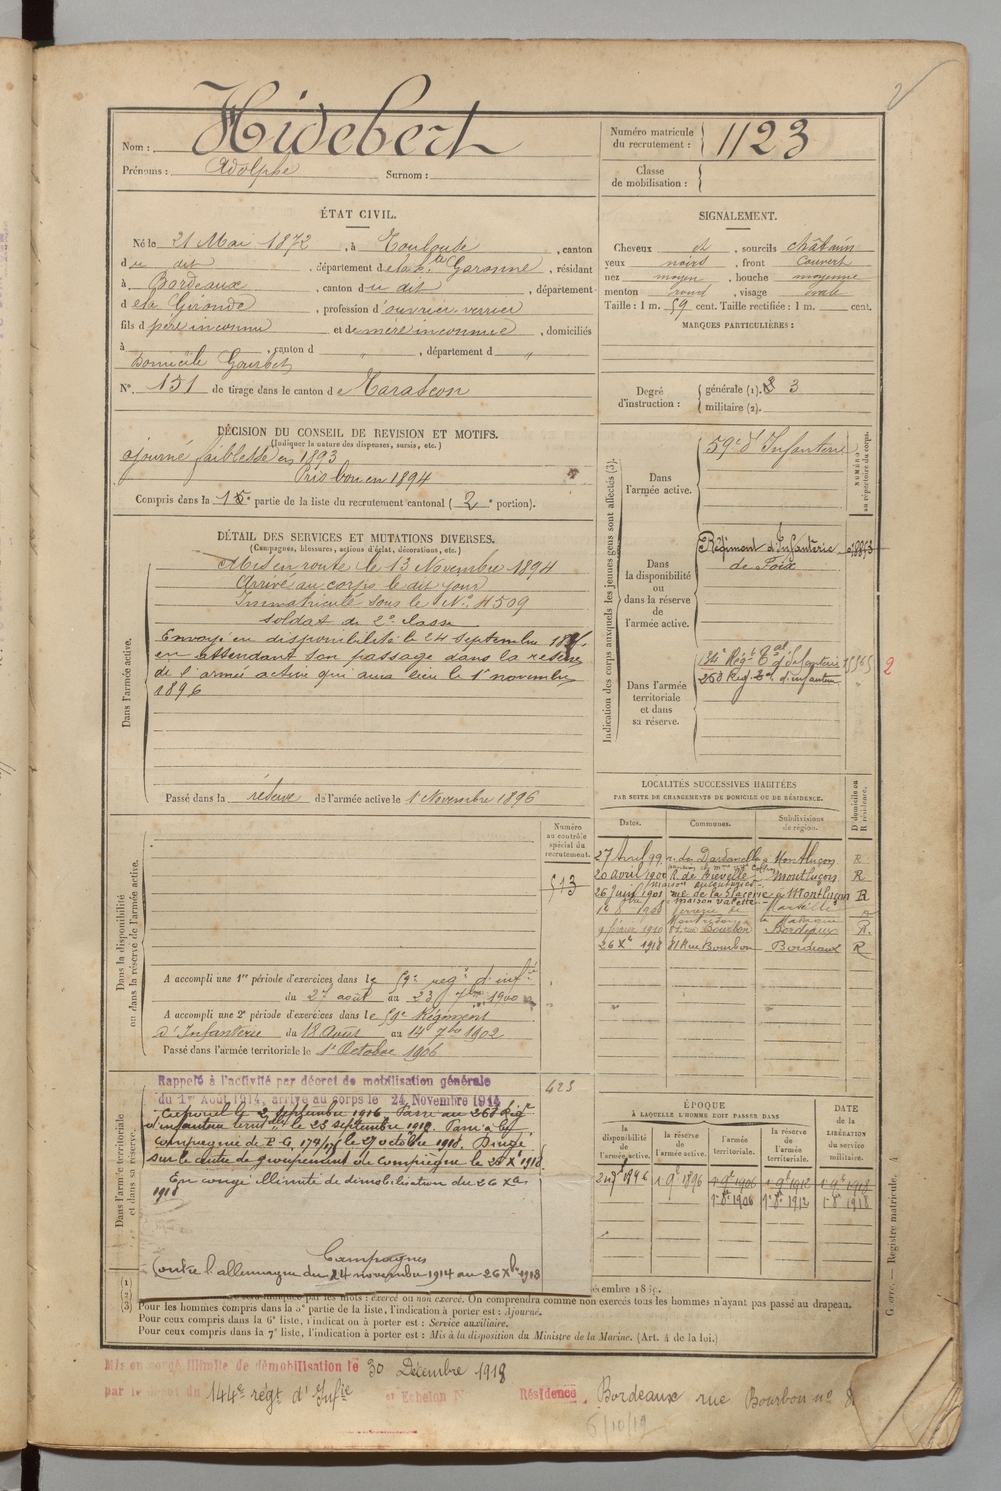 Nom : Hidebert
Prénoms : Adolphe Surnom :
Numéro matricule du recrutement : 1123
Classe de mobilisation :
ÉTAT CIVIL.
Né le 21 Mai 1872, à Toulouse, canton
du dit, département de la Hte Garonne, résidant
à Bordeaux, canton du dit, département
de la Gironde, profession d'ouvrier verrier
fils d père inconnu et de mère inconnue, domiciliés
à , canton d " , département d "
Domicile
No. 151 de tirage dans le canton de Tarascon
SIGNALEMENT.
Cheveux et, sourcils châtain
yeux noirs, front couvert
nez moyen, bouche moyenne
menton rond, visage ovale
Taille : 1 m. 59 cent. Taille rectifiée : 1 m. cent.
MARQUES PARTICULIÈRES :
Degré d'instruction : générale (1). 3
militaire (2).
DÉCISION DU CONSEIL DE REVISION ET MOTIFS.
(Indiquer la nature des dispenses, sursis, etc.)
ajourné faiblesse en 1893
Pris bon en 1894
Compris dans la partie de la liste du recrutement cantonal ( 2e portion).
DÉTAIL DES SERVICES ET MUTATIONS DIVERSES.
(Campagnes, blessures, actions d'éclat, décorations, etc.)
Dans l'armée active.
Mis en route le 13 Novembre 1894
Arrivé au corps le dit jour
Immatriculé sous le No. 4509
soldat de 2e classe
Envoyé en disponibilité le 24 septembre
en attendant son passage dans la réserve
de l'armée active qui aura lieu le 1er novembre
1896
Passé dans la réserve de l'armée active le 1 Novembre 1896
Indication des corps auxquels les jeunes gens sont affectés (3).
NUMÉRO au répertoire du corps.
Dans l'armée active.
59e d'Infanterie
Dans la disponibilité ou dans la réserve de l'armée active.
Régiment d'Infanterie
de Foix
Dans l'armée territoriale et dans sa réserve.
Régt Tal d'Infanterie
Reg. Tal d'infanterie
2
LOCALITÉS SUCCESSIVES HABITÉES
PAR SUITE DE CHANGEMENTS DE DOMICILE OU DE RÉSIDENCE.
Dates. Communes. Subdivisions de région. D domicile ou R résidence.
27 Avril 99 r. des Dardanelles Montluçon R
20 avril 1900 Montluçon R
26 Juin 1901 rue de la Glacerie à Montluçon R
maison Valette
1908 verrerie de Marseille
février 1910 rue Bourbon Bordeaux R.
26 Xbre 1918 81 Rue Bourbon Bordeaux R
Numéro au contrôle spécial du recrutement.
513
Dans la disponibilité ou dans la réserve de l'armée active.
A accompli une 1re période d'exercices dans le 59e regt d'infie
du 27 août au 23 7bre 1900
A accompli une 2e période d'exercices dans le 59e Régiment
d'Infanterie du 18 Août au 14 7bre 1902
Passé dans l'armée territoriale le 1er Octobre 1906
425
Dans l'armée territoriale et dans sa réserve.
Rappelé à l'activité par décret de mobilisation générale
du 1er Août 1914, arrivé au corps le 24 Novembre 1914
Caporal le 2 septembre 1916 Passé au Rég
d'infanterie le 23 septembre 1918. Passé à la
compagnie de P. G. le 27 octobre 1918. Dirigé
sur le centre de groupement de Compiègne le 1918.
En congé illimité de démobilisation du 26 Xbre
1918
Campagnes
Contre l'allemagne du 24 novembre 1914 au 26 Xbre 1918
ÉPOQUE
À LAQUELLE L'HOMME DOIT PASSER DANS
la disponibilité de l'armée active. la réserve de l'armée active. l'armée territoriale. la réserve de l'armée territoriale.
DATE DE LA LIBÉRATION DU SERVICE militaire.
1896 1896 1906 1912 1918
1908 1912 1918
décembre 18
par les mots : exercé ou non exercé. On comprendra comme non exercés tous les hommes n'ayant pas passé au drapeau.
Pour les hommes compris dans la 5e partie de la liste, l'indication à porter est : Ajourné.
Pour ceux compris dans la 6e liste, l'indication à porter est : Service auxiliaire.
Pour ceux compris dans la 7e liste, l'indication à porter est : Mis à la disposition du Ministre de la Marine. (Art. 4 de la loi.)
Registre matricule. A
Mis en congé illimité de démobilisation le 30 Décembre 1918
par le dépôt du 144e régt d'Infie et Echelon N Résidence Bordeaux rue Bourbon no 8
6/10/19